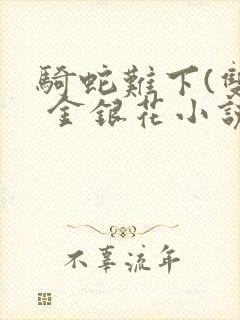 騎蛇難下(雙
金銀花小說
不辜流年